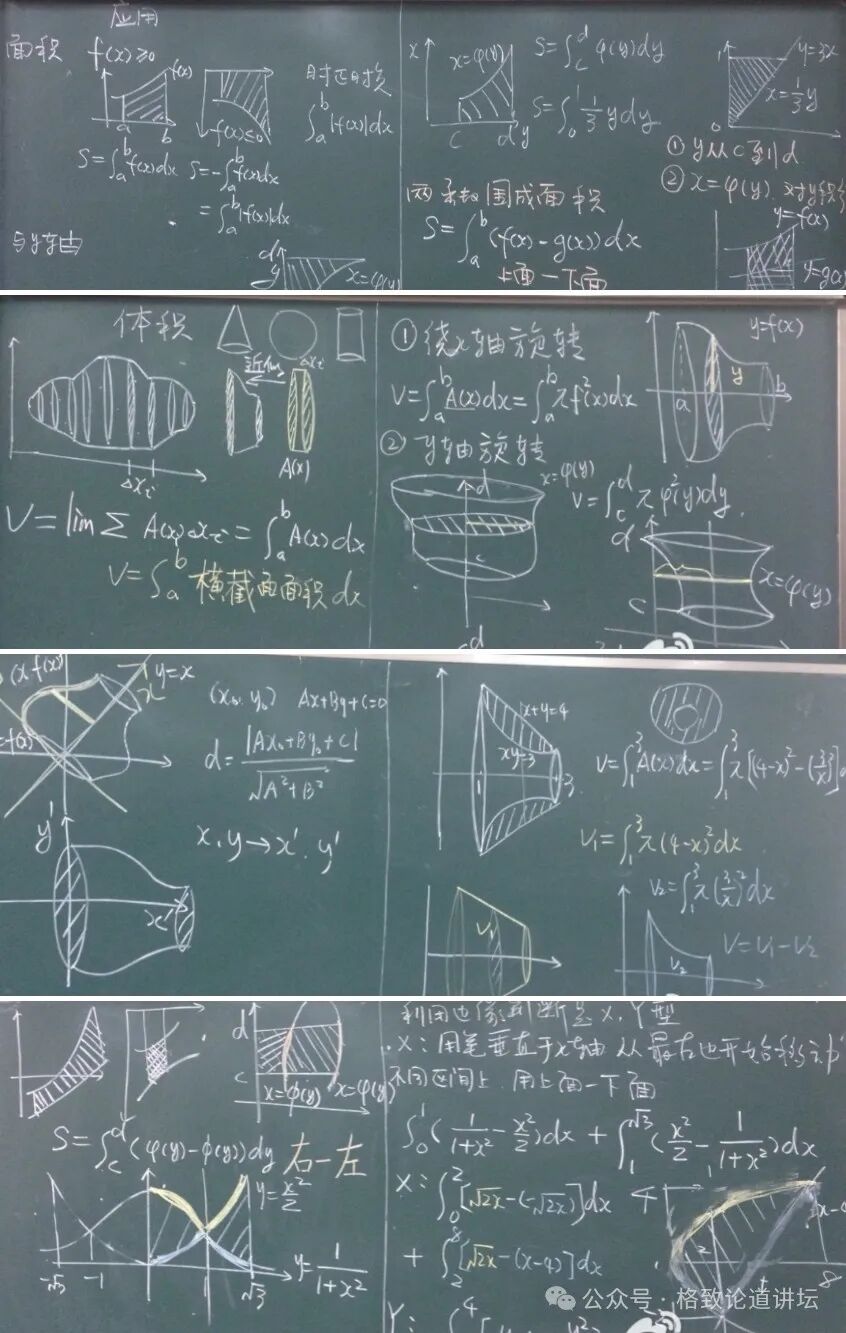 应用
面积 f(x)≥0
f(x)
a b
f(x)≤0
时正时负
∫_a^b |f(x)|dx
S=∫_a^b f(x)dx
S=-∫_a^b f(x)dx
=∫_a^b |f(x)|dx
与y轴
d
y
x=φ(y)
x
x=φ(y)
c d y
S=∫_c^d φ(y)dy
S=∫_0^1 1/3 y dy
y=3x
x=1/3 y
1
0
① y从c到d
② x=φ(y) 对y积分
围成面积
S=∫_a^b (f(x)-g(x))dx
上面一下面
y=f(x)
y=g(x)
体积
近似
Δx_i
A(x)
Δx_i
V=lim∑A(x)Δx_i=∫_a^b A(x)dx
V=∫_a^b 横截面面积dx
① 绕x轴旋转
V=∫_a^b A(x)dx=∫_a^b πf²(x)dx
y=f(x)
y
a b
② y轴旋转
x=φ(y)
d
c
V=∫_c^d πφ²(y)dy
d
c
x=φ(y)
d
(x,f(x))
y=x
x'
(x₀,y₀) Ax+By+C=0
d=|Ax₀+By₀+C|/√(A²+B²)
x,y→x',y'
y'
x'
x+y=4
xy=3
1 3
V=∫_1^3 A(x)dx=∫_1^3 π[(4-x)²-(3/x)²]d
V₁=∫_1^3 π(4-x)²dx
V₂=∫_1^3 π(3/x)²dx
V₁
V₂
V=V₁-V₂
d
c
x=ϕ(y) x=φ(y)
S=∫_c^d (φ(y)-ϕ(y))dy 右一左
y=x²/2
y=1/(1+x²)
-√3 -1 1 √3
利用图像判断是X,Y型
X:用笔垂直于x轴 从最左边开始移动
不同区间上 用上面一下面
∫_0^1 (1/(1+x²)-x²/2)dx+∫_1^√3 (x²/2-1/(1+x²))dx
X:∫_0^2 [√2x-(-√2x)]dx
+∫_2^8 [√2x-(x-4)]dx
4
2
8
Y:
公众号·格致论道讲坛